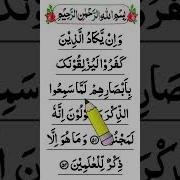 بِسْمِ اللهِ الرَّحْمٰنِ الرَّحِيْمِ
وَاِنْ يَّكَادُ الَّذِيْنَ
كَفَرُوْا لَيُزْلِقُوْنَكَ
بِاَبْصَارِهِمْ لَمَّا سَمِعُوا
الذِّكْرَ اِنَّهٗ
وَمَا هُوَ اِلَّا
ذِكْرٌ لِّلْعٰلَمِيْنَ